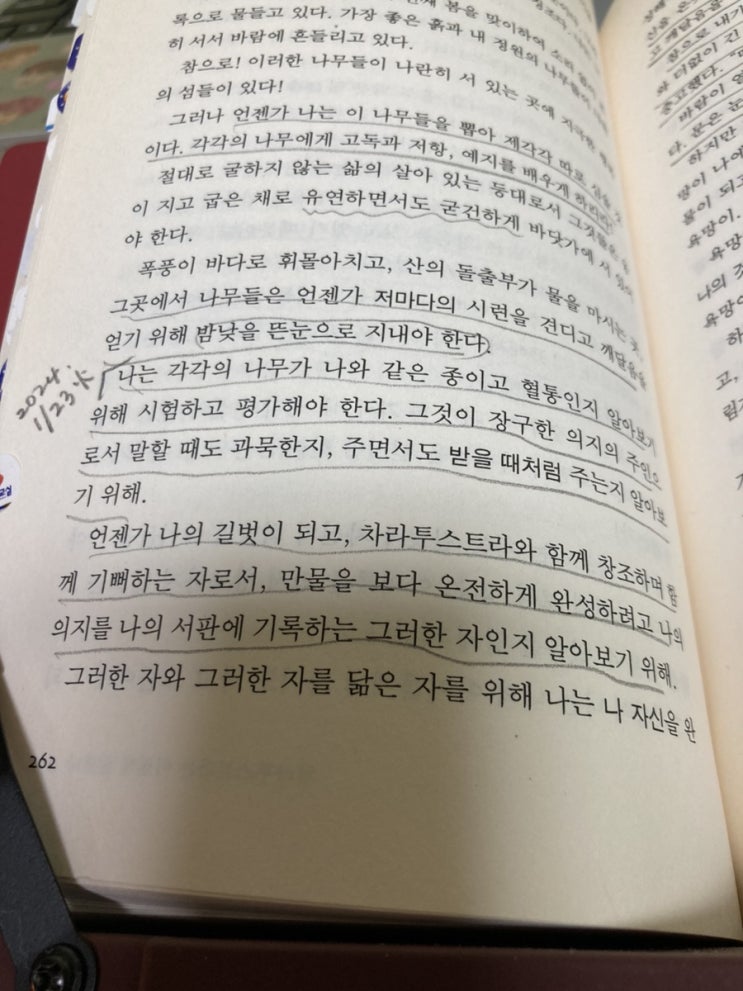 봄을 맞이하여 소리 없이
록으로 물들고 있다. 가장 좋은 흙과 내 정원의 나무들이
히 서서 바람에 흔들리고 있다.
참으로! 이러한 나무들이 나란히 서 있는 곳에
의 섬들이 있다!
그러나 언젠가 나는 이 나무들을 뽑아 제각각 따로
이다. 각각의 나무에게 고독과 저항, 예지를 배우게 하리라!
절대로 굴하지 않는 삶의 살아 있는 등대로서 그것들은
이 지고 굽은 채로 유연하면서도 굳건하게 바닷가에 서 있어
야 한다.
폭풍이 바다로 휘몰아치고, 산의 돌출부가 물을 마시는 곳,
그곳에서 나무들은 언젠가 저마다의 시련을 견디고 깨달음을
얻기 위해 밤낮을 뜬눈으로 지내야 한다.
나는 각각의 나무가 나와 같은 종이고 혈통인지 알아보기
위해 시험하고 평가해야 한다. 그것이 장구한 의지의 주인으
로서 말할 때도 과묵한지, 주면서도 받을 때처럼 주는지 알아보
기 위해.
언젠가 나의 길벗이 되고, 차라투스트라와 함께 창조하며 함
께 기뻐하는 자로서, 만물을 보다 온전하게 완성하려고 나의
의지를 나의 서판에 기록하는 그러한 자인지 알아보기 위해.
그러한 자와 그러한 자를 닮은 자를 위해 나는 나 자신을 완
262
2024.
1/23.火
성해
산을 온
고 깨달음을
참으로 내가
와 더없이 긴
충고했다.
바람이 열
다. 문은
하지만
땅이 나에
물이 되고
욕망이.
욕망
나의 것
욕망이
하
고,